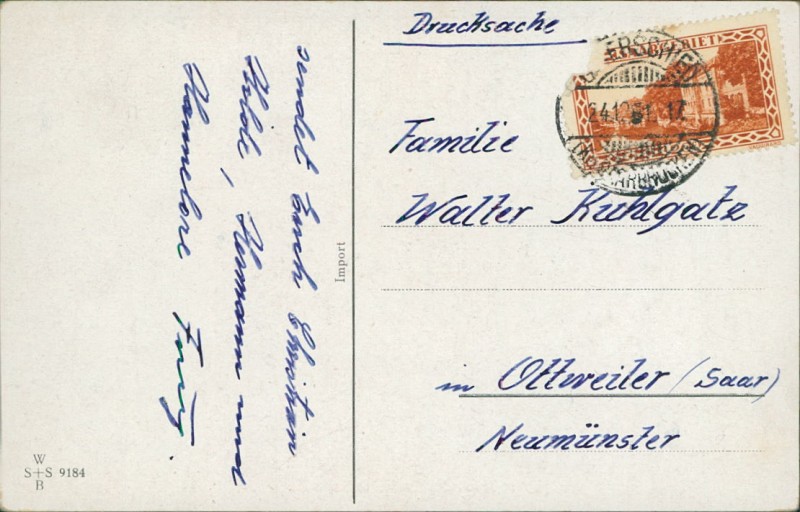 Drucksache
SAARGEBIET
24.12.31. 17
Familie
Walter Kuhlgatz
in Ottweiler (Saar)
Neumünster
Import
sendet Euch Christian
Hilde, Hermann und
Hannelore
W
S+S 9184
B